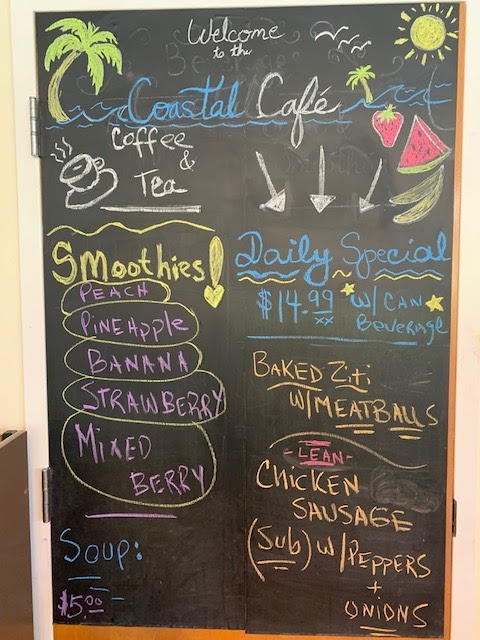 Welcome
to the
Coastal Café
Coffee
&
Tea
Smoothies!
PEACH
PINEApple
BANANA
STRAWBERRY
MIXED
BERRY
Soup:
$5.00
Daily Special
$14.99 w/ CAN
xx Beverage
BAKED Ziti
w/MEATBALLS
-LEAN-
CHICKEN
SAUSAGE
(Sub) w/PEPPERS
+
ONIONS